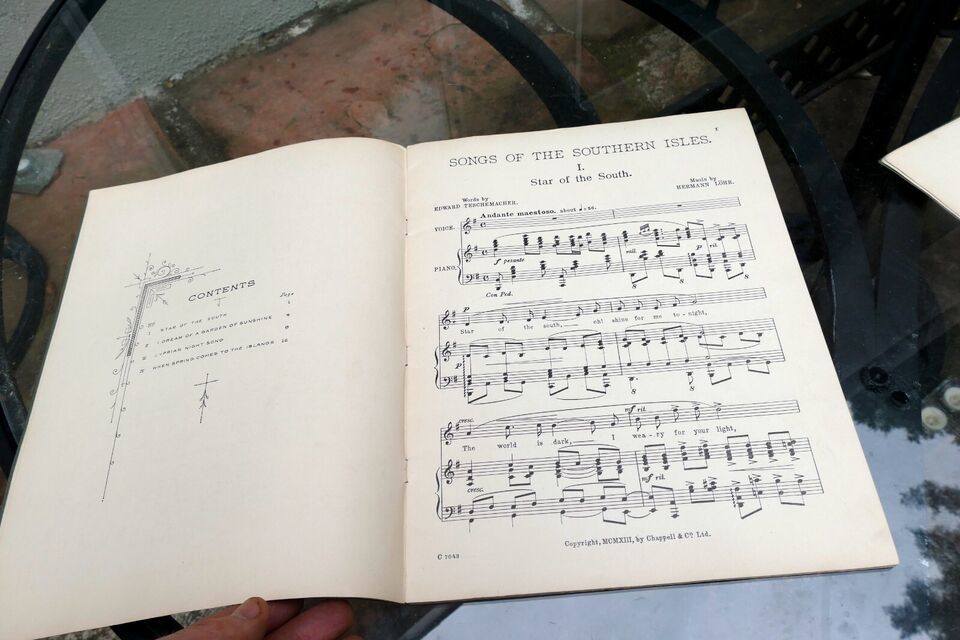 CONTENTS
Page
No
1 STAR OF THE SOUTH 1
2 I DREAM OF A GARDEN OF SUNSHINE 4
3 CYPRIAN NIGHT SONG 8
4 WHEN SPRING COMES TO THE ISLANDS 12
1
SONGS OF THE SOUTHERN ISLES.
I.
Star of the South.
Words by
EDWARD TESCHEMACHER.
Music by
HERMANN LÖHR.
Andante maestoso. about ♩=56.
VOICE.
PIANO.
f pesante
rall.
p ril.
Con Ped.
8
8
p
Star of the south, oh! shine for me to-night,
p
8
8
cresc.
mf ril.
The world is dark, I wea-ry for your light,
cresc.
mf ril.
Copyright, MCMXIII, by Chappell & Co. Ltd.